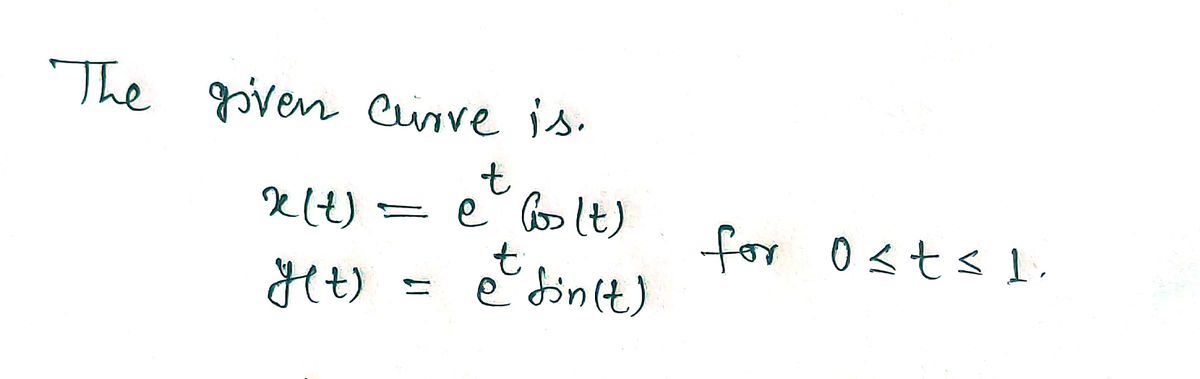 The given curve is.
x(t) = e^t Cos(t)
y(t) = e^t sin(t) for 0 ≤ t ≤ 1.